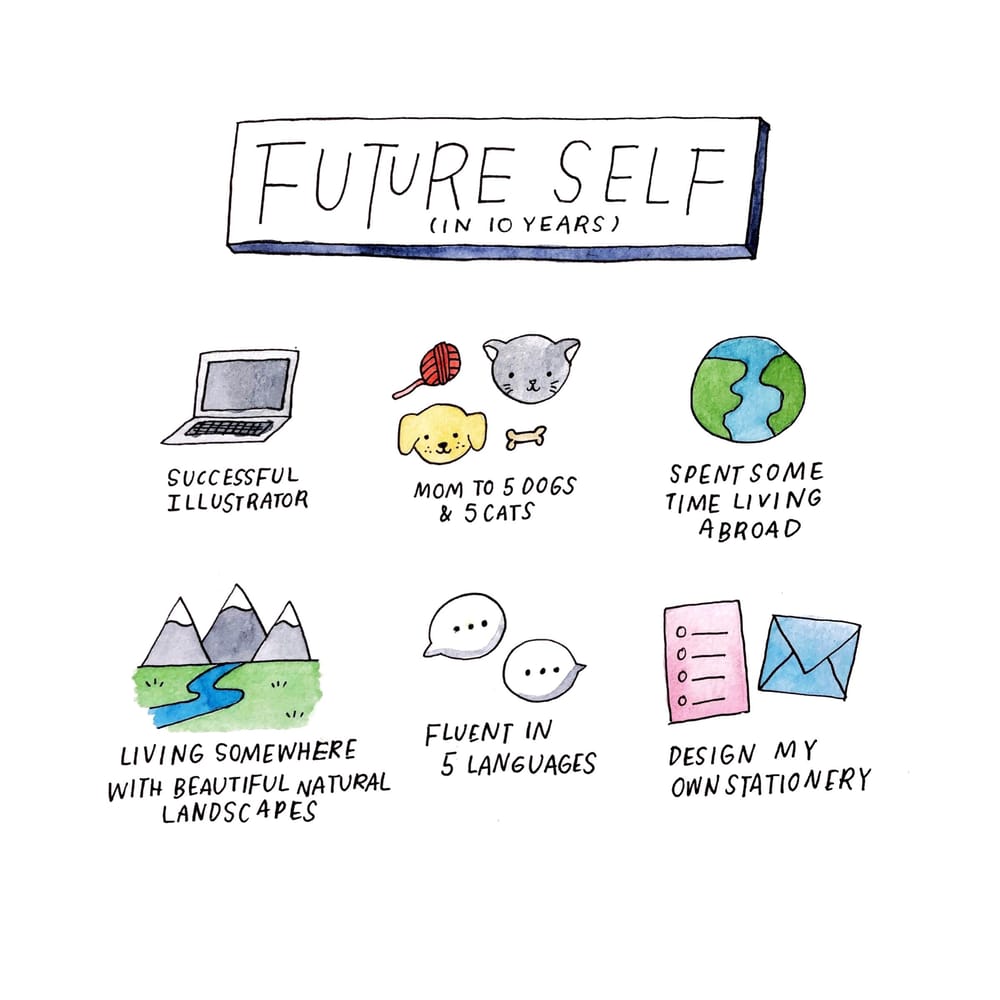 FUTURE SELF
(IN 10 YEARS)
SUCCESSFUL
ILLUSTRATOR
MOM TO 5 DOGS
& 5 CATS
SPENT SOME
TIME LIVING
ABROAD
LIVING SOMEWHERE
WITH BEAUTIFUL NATURAL
LANDSCAPES
FLUENT IN
5 LANGUAGES
DESIGN MY
OWN STATIONERY